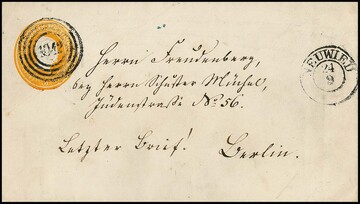 1042
Herrn Freudenberg,
bey Herrn Schuster Müchel,
Judenstraße No 56.
Letzter Brief! Berlin.
NEUWIED
24
9